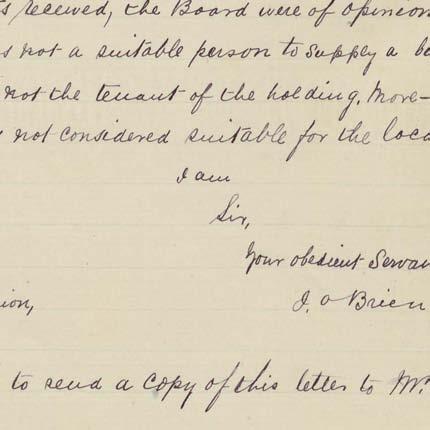 s received, the Board were of opinion
s not a suitable person to supply a bu
not the tenant of the holding. More-
not considered suitable for the loca
I am
Sir,
Your obedient Servan
nion,
J. O Brien
to send a copy of this letter to Mr.